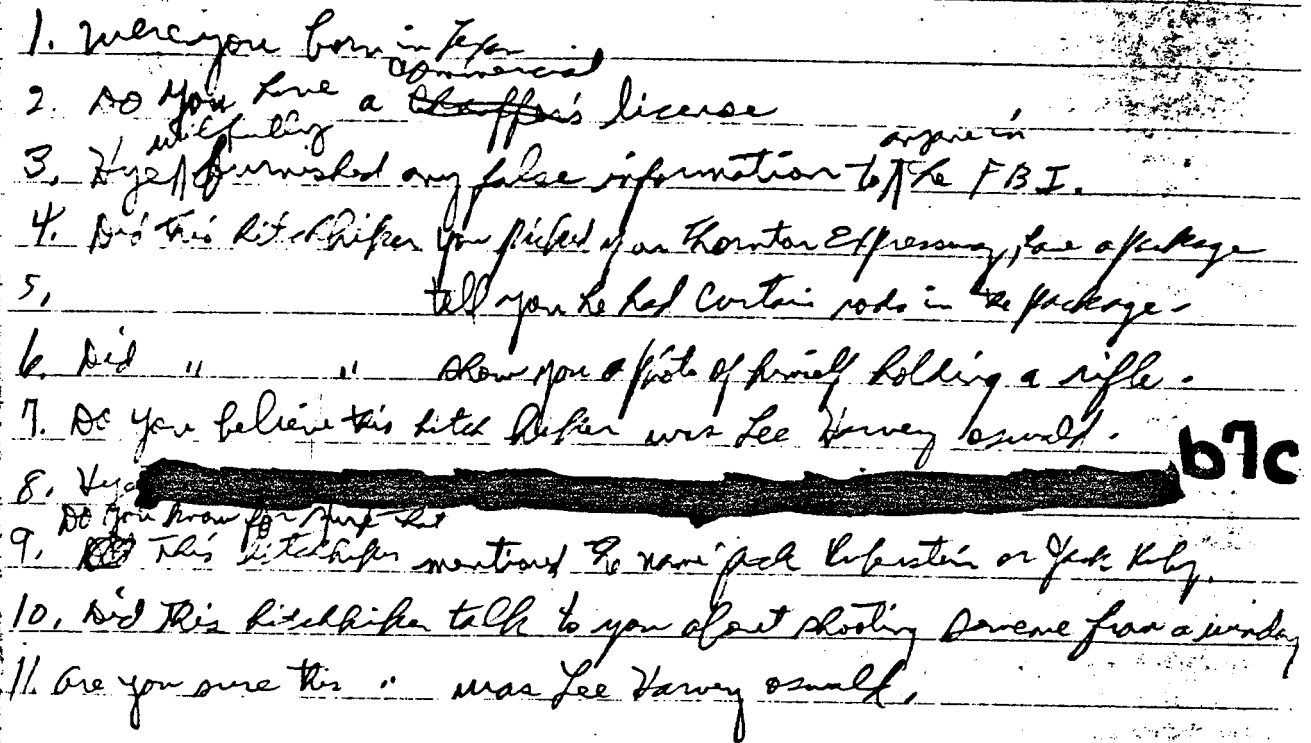 1. Were you born in Texas
2. Do you have a commercial chauffer's license
3. Hye wilfully furnished any false information to anyone in the FBI.
4. Did this hitchhiker you picked up on Thornton Expressway, have a package
5. tell you he had curtain rods in the package.
6. Did " " show you a photo of himself holding a rifle.
7. Do you believe this hitch hiker was Lee Harvey Oswald.
b7c
8. Hye
Do you know for sure that
9. this hitchhiker mentioned the name Jack Rubenstein or Jack Ruby.
10. Did this hitchhiker talk to you about shooting someone from a window
11. Are you sure this " was Lee Harvey Oswald.